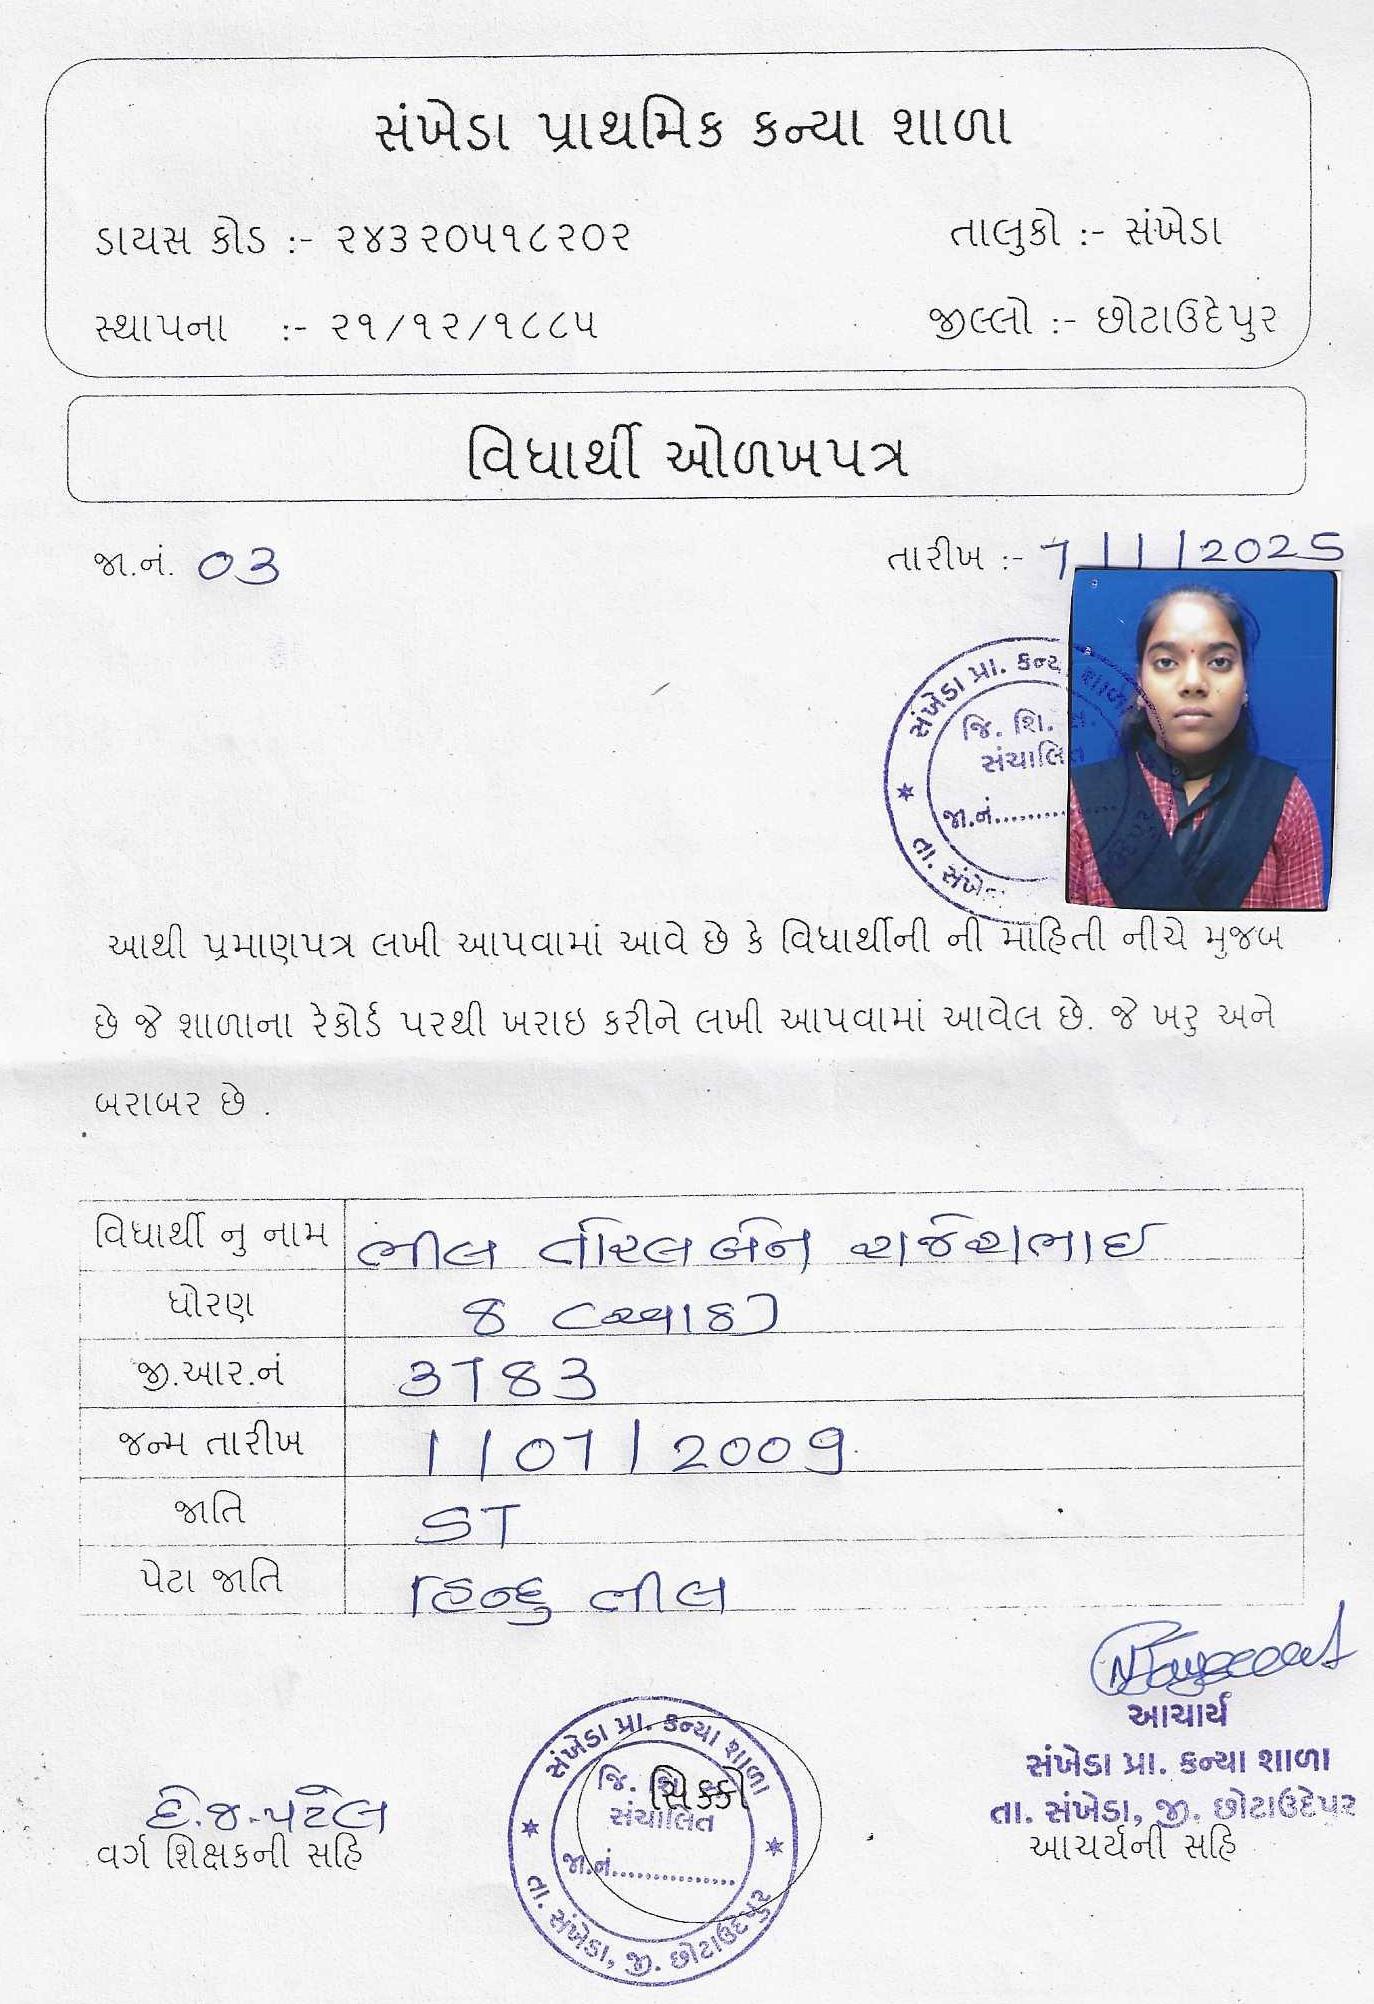 સંખેડા પ્રાથમિક કન્યા શાળા
ડાયસ કોડ :- ૨૪૩૨૦૫૧૮૨૦૨
તાલુકો :- સંખેડા
સ્થાપના :- ૨૧/૧૨/૧૮૮૫
જીલ્લો :- છોટાઉદેપુર
વિધાર્થી ઓળખપત્ર
જા.નં. 03
તારીખ :- 7/1/2025
સંખેડા પ્રા. કન્યા શાળા
જિ. શિ. સ.
સંચાલિત
જા.નં...............
તા. સંખેડા
આથી પ્રમાણપત્ર લખી આપવામાં આવે છે કે વિધાર્થીની ની માહિતી નીચે મુજબ
છે જે શાળાના રેકોર્ડ પરથી ખરાઇ કરીને લખી આપવામાં આવેલ છે. જે ખરુ અને
બરાબર છે .
વિધાર્થી નુ નામ ભીલ તોરલબેન રાજેશભાઇ
ધોરણ 8 (આઠ)
જી.આર.નં 3783
જન્મ તારીખ 1/07/2009
જાતિ ST
પેટા જાતિ હિન્દુ ભીલ
આચાર્ય
સંખેડા પ્રા. કન્યા શાળા
તા. સંખેડા, જી. છોટાઉદેપુર
આચર્યની સહિ
સંખેડા પ્રા. કન્યા શાળા
જિ. શિ.
સિક્કો
સંચાલિત
જા.નં...............
તા. સંખેડા, જી. છોટાઉદેપુર
હે.જ.પટેલ
વર્ગ શિક્ષકની સહિ